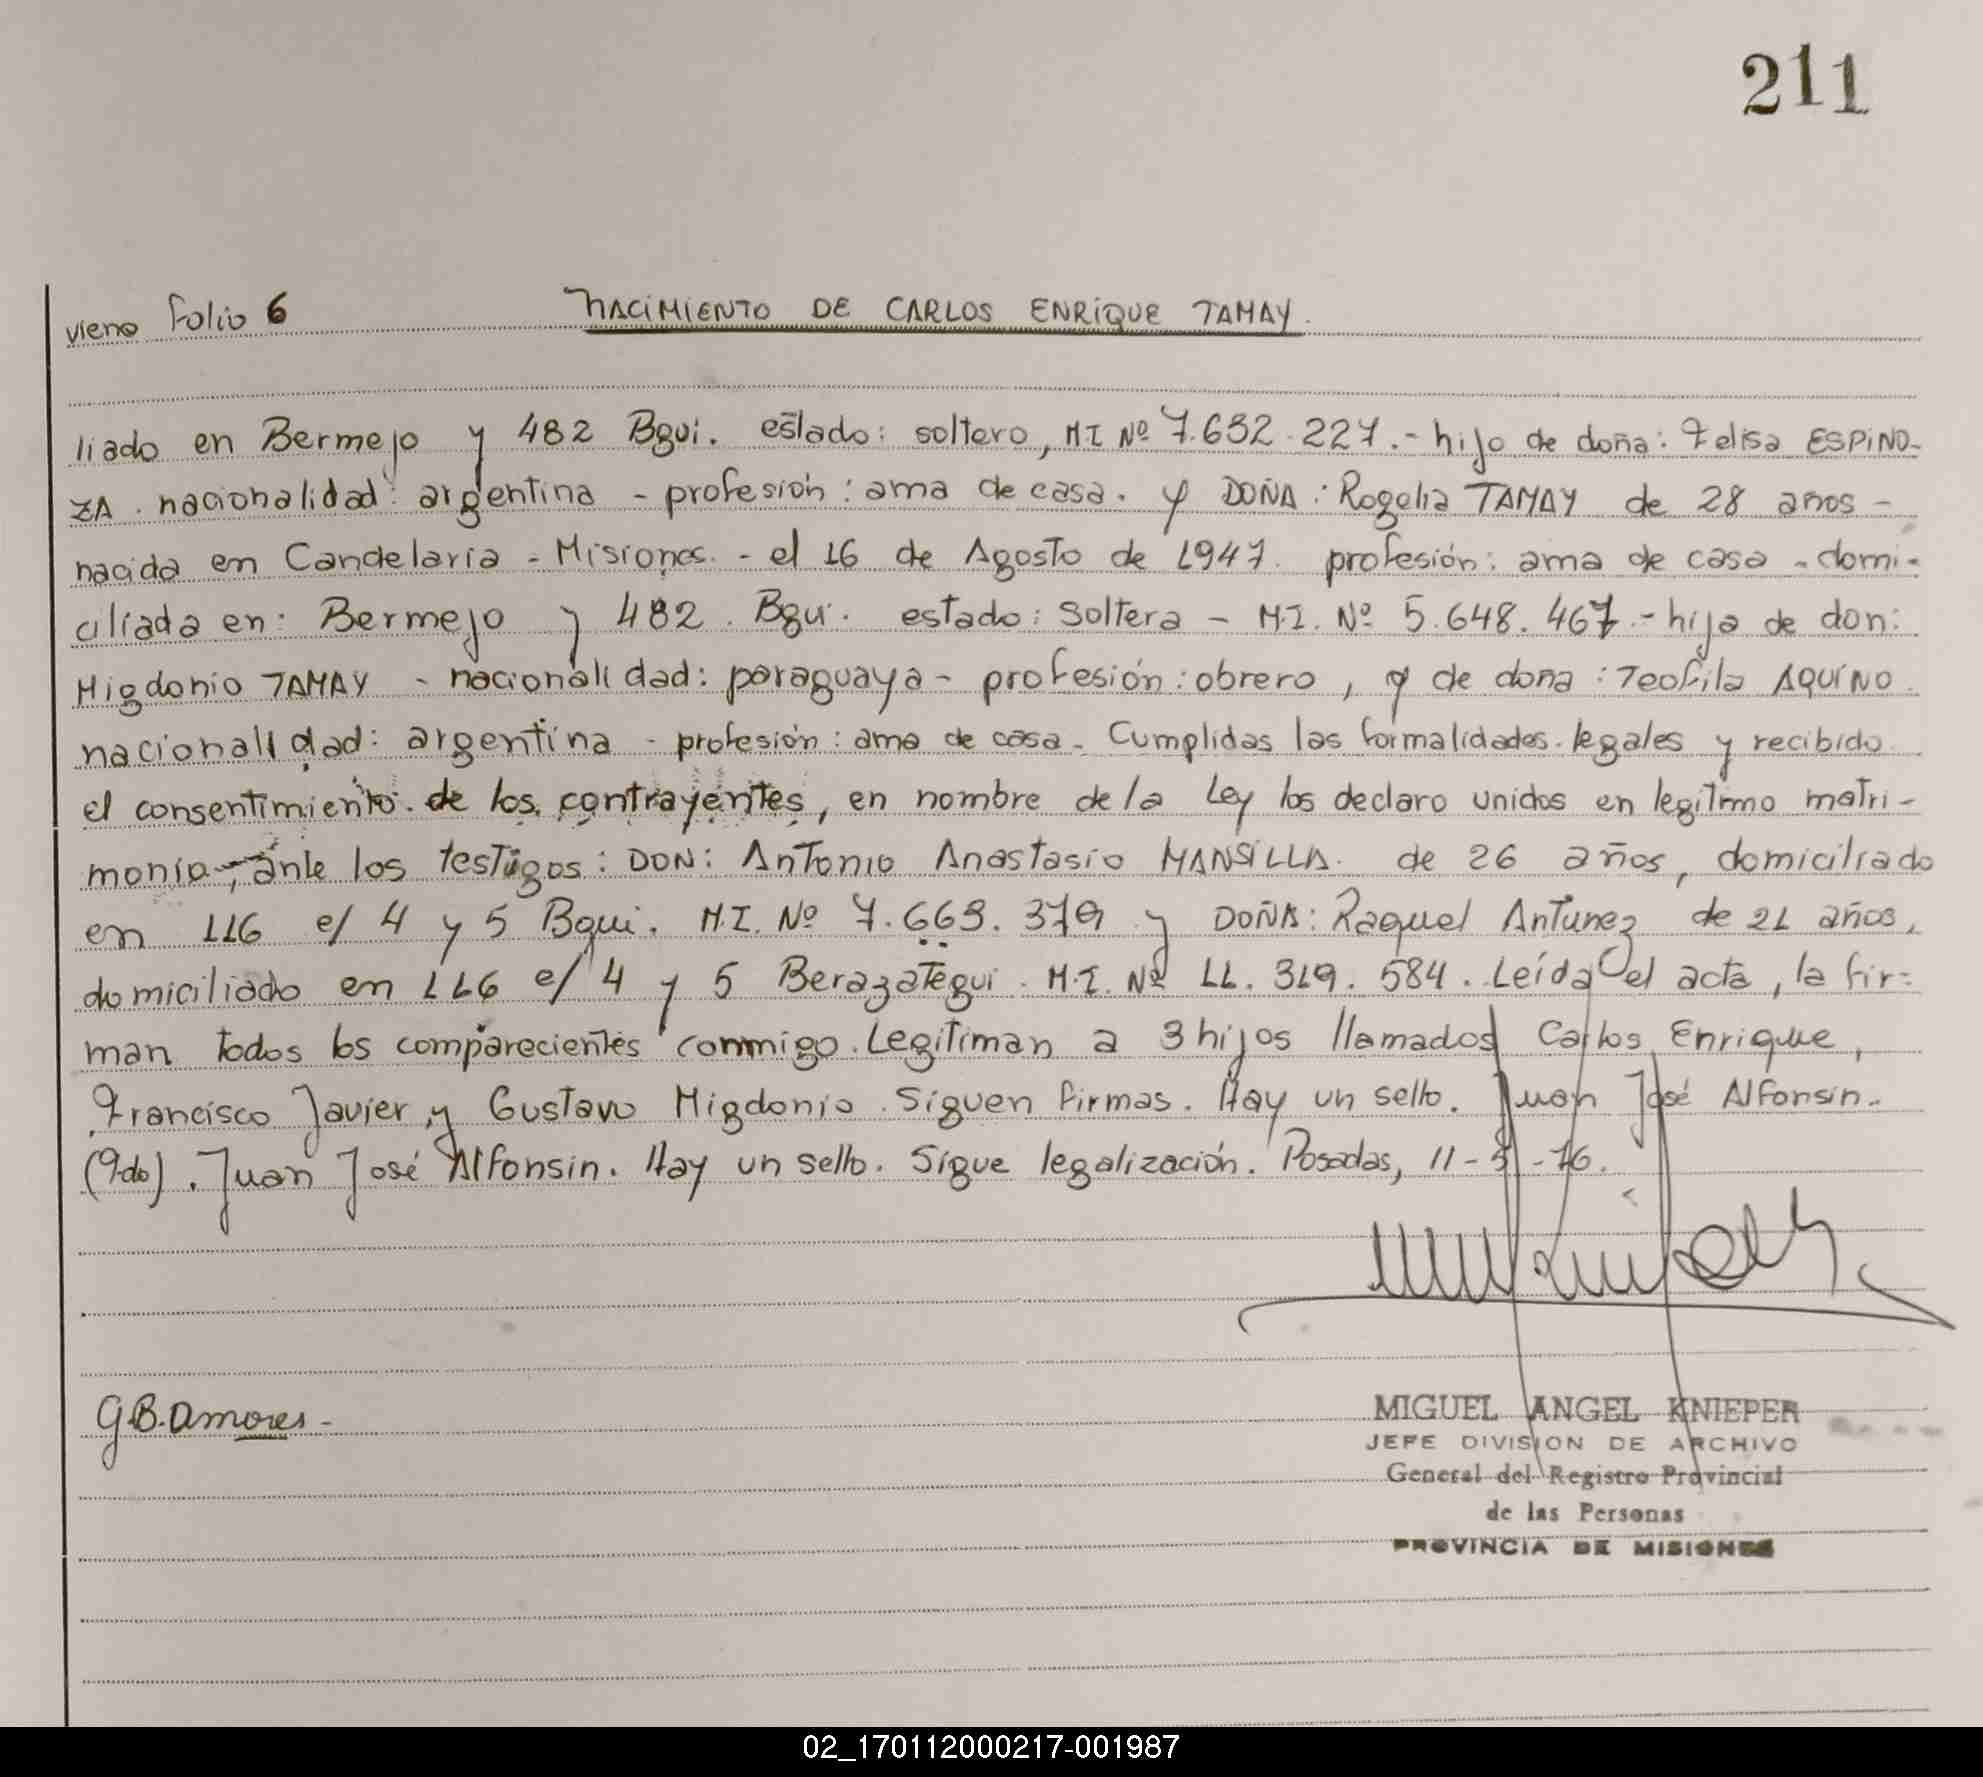 211
viene Folio 6 NACIMIENTO DE CARLOS ENRIQUE TAMAY.
liado en Bermejo y 482 Bgui. estado: soltero, MI Nº 7.632.227.- hijo de doña: Felisa ESPINO-
ZA. nacionalidad: argentina - profesión: ama de casa. y DOÑA: Rogelia TAMAY de 28 años -
nacida en Candelaria - Misiones. - el 16 de Agosto de 1947. profesión: ama de casa - domi-
ciliada en: Bermejo y 482. Bgui. estado: soltera - M.I. Nº 5.648.467.- hija de don:
Migdonio TAMAY - nacionalidad: paraguaya - profesión: obrero, y de doña: Teofila AQUINO.
nacionalidad: argentina - profesión: ama de casa. Cumplidas las formalidades legales y recibido
el consentimiento de los contrayentes, en nombre de la Ley los declaro unidos en legítimo matri-
monio, ante los testigos: DON: Antonio Anastasio MANSILLA. de 26 años, domiciliado
en 116 e/ 4 y 5 Bgui. M.I. Nº 7.663.379 y DOÑA: Raquel Antunez de 21 años,
domiciliado en 116 e/ 4 y 5 Berazategui. M.I. Nº 11.319.584. Leída el acta, la fir-
man todos los comparecientes conmigo. Legitiman a 3 hijos llamados Carlos Enrique,
Francisco Javier y Gustavo Migdonio. Siguen firmas. Hay un sello. Juan José Alfonsin.
(Fdo). Juan José Alfonsin. Hay un sello. Sigue legalización. Posadas, 11-5-76.
G.B. Amores-
MIGUEL ANGEL KNIEPER
JEFE DIVISION DE ARCHIVO
General del Registro Provincial
de las Personas
PROVINCIA DE MISIONES
02_170112000217-001987